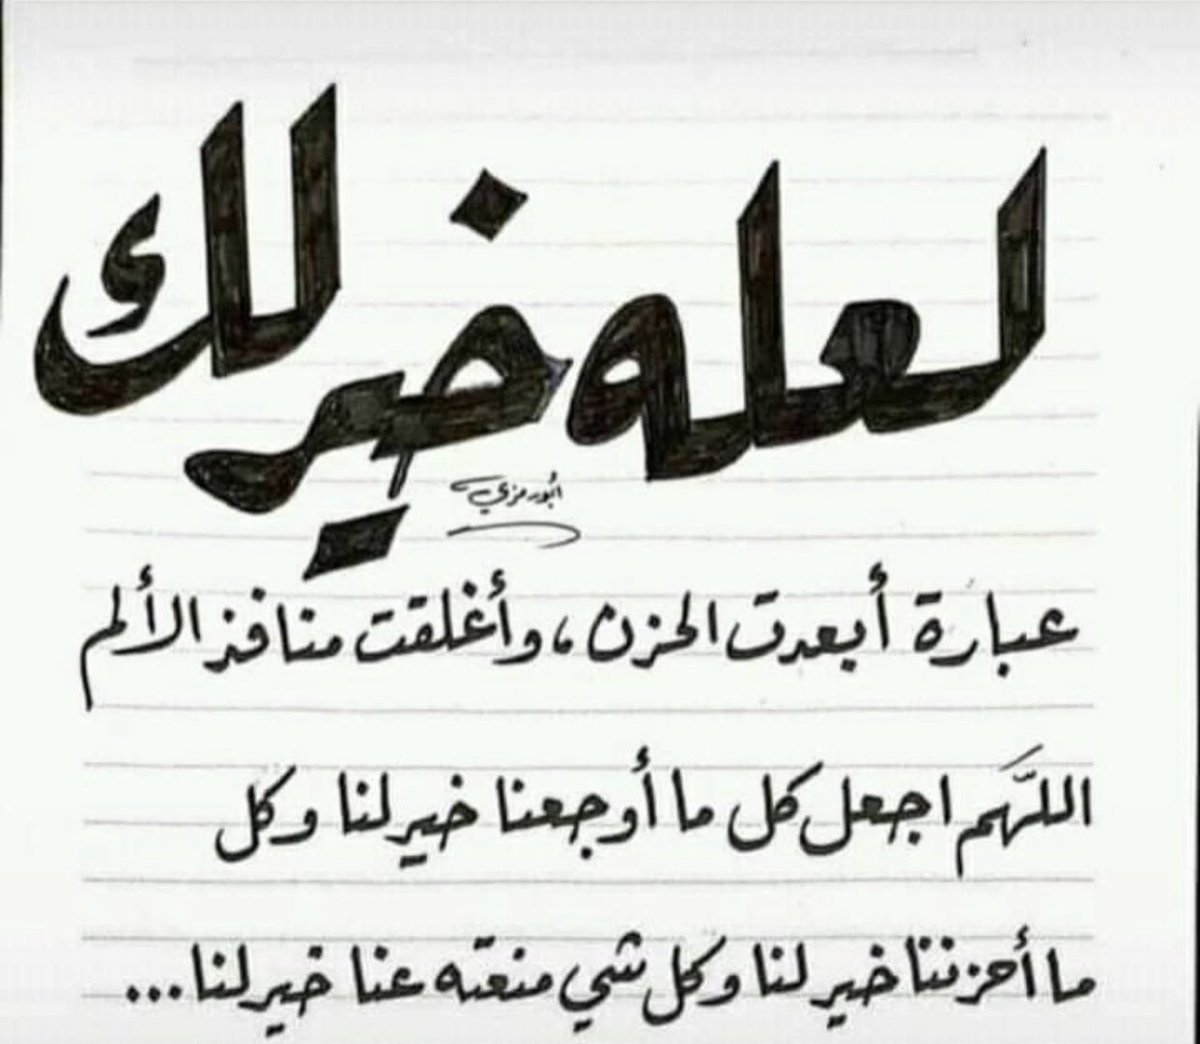 لعله خير لك
أبو رمزي
عبارة أبعدت الحزن ، وأغلقت منافذ الألم
اللَّهم اجعل كل ما أوجعنا خير لنا وكل
ما أحزننا خير لنا وكل شي منعته عنا خير لنا ...